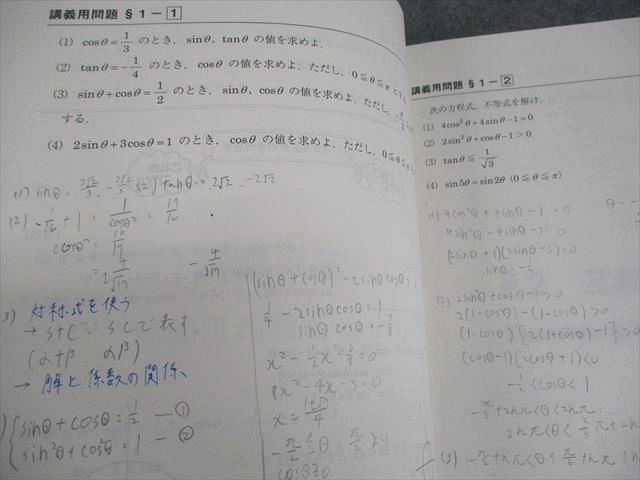 講義用問題 § 1 － 1
(1) cosθ = 1/3 のとき，sinθ，tanθ の値を求めよ．
(2) tanθ = -1/4 のとき，cosθ の値を求めよ．ただし，0≦θ≦π とする
(3) sinθ + cosθ = 1/2 のとき，sinθ，cosθ の値を求めよ．ただし，
する．
(4) 2sinθ + 3cosθ = 1 のとき，cosθ の値を求めよ．ただし，0≦θ≦
(1) sinθ = 2√2/3, -2√2/3 (2) tanθ = 2√2, -2√2
(2) 1/16 + 1 = 1/cos²θ = 17/16
cosθ² = 16/17
4/√17 - 4/√17
3) 対称式を使う
→ S+C, SCで表す．
(α+β αβ)
→ 解と係数の関係、
sinθ + cosθ = 1/2 — ①
sin²θ + cos²θ = 1 — ②
(sinθ + cosθ)² - 2sinθcosθ = 1
1/4 - 2sinθcosθ = 1
sinθ cosθ = -3/8
x² - 1/2x - 3/8 = 0
8x² - 4x - 3 = 0
x = 1±√7/4
-π/2 ≦ θ = π/2 より
cosθ ≧ 0
講義用問題 § 1 － 2
次の方程式，不等式を解け．
(1) 4cos²θ + 4sinθ - 1 = 0
(2) 2sin²θ + cosθ - 1 > 0
(3) tanθ ≦ 1/√3
(4) sin5θ = sin2θ (0≦θ≦π)
(1) 4cos²θ + 4sinθ - 1 = 0
4sin²θ - 4sinθ - 3 = 0
(2sinθ + 1)(2sinθ - 3) = 0
sinθ = -1/2
θ = -
(2) 2sin²θ + cosθ - 1 > 0
2(1 - cosθ) - (1 - cosθ) > 0
(1 - cosθ){2(1 + cosθ) - 1} > 0
(cosθ - 1)(2cosθ + 1) < 0
-1/2 < cosθ < 1
-2π/3 + 2nπ < θ < 2nπ,
2nπ < θ < 2/3π + 2nπ
(3) -π/2 + nπ < θ ≦ π/6 + nπ